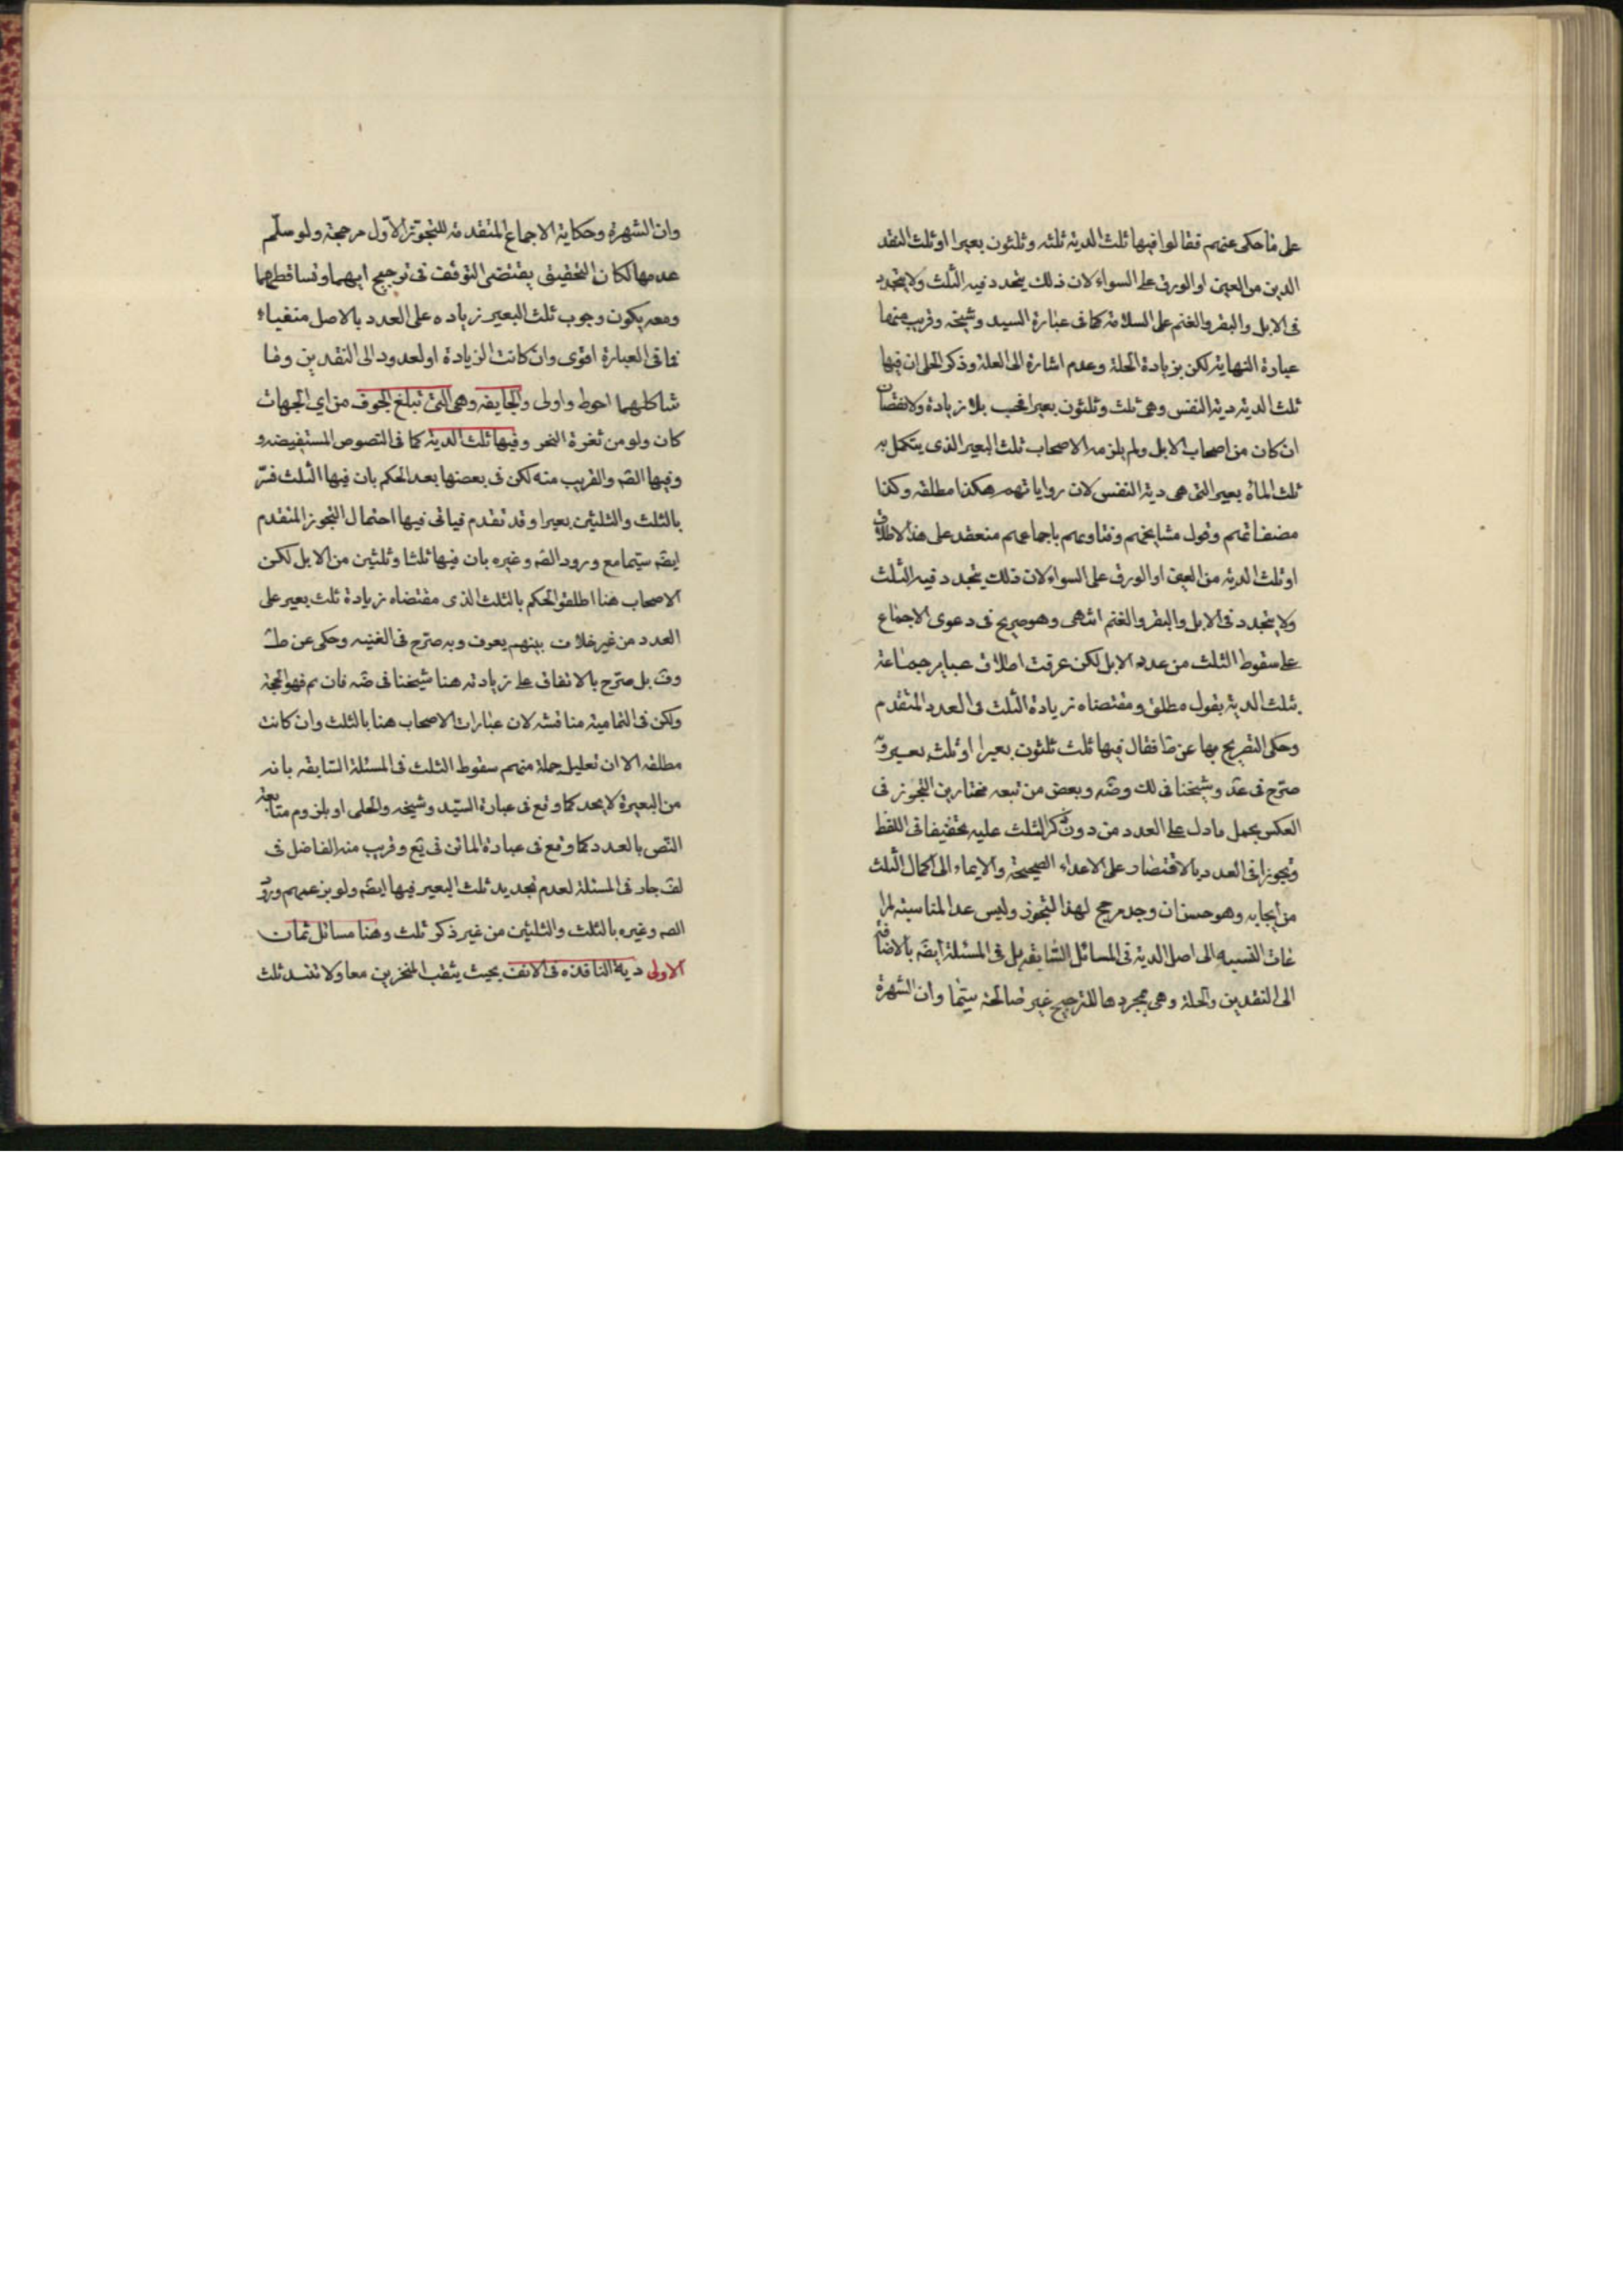 على ما حكى عنهم فقالوا فيها ثلث الدية ثلثة وثلثون بعيرا او ثلث النقد
الدين من العين او الورق على السواء لان ذلك يتحدد فيه الثلث ولا يتحدد
فى الابل والبقر والغنم على السلامة كما فى عبارة السيد وشيخه وقريب منها
عبارة النهاية لكن بزيادة الحلة وعدم اشارة الى العلة وذكر الحلى ان فيها
ثلث الدية دية النفس وهى ثلث وثلثون بعيرا فحسب بلا زيادة ولا نقصان
ان كان من اصحاب الابل ولم يلزمه الاصحاب ثلث البعير الذى يتكمل به
ثلث المائة بعير التى هى دية النفس لان رواياتهم هكذا مطلقه وكذا
مصنفاتهم وقول مشايخهم وفتاويهم باجماعهم منعقد على هذا الاطلاق
او ثلث الدية من العين او الورق على السواء لان ذلك يتحدد فيه الثلث
ولا يتحدد فى الابل والبقر والغنم انتهى وهو صريح فى دعوى الاجماع
على سقوط الثلث من عدد الابل لكن عرفت اطلاق عباير جماعة
بثلث الدية بقول مطلق ومقتضاه زيادة الثلث فى العدد المتقدم
وحكى التصريح بها عن فقال فيها ثلث ثلثون بعيرا او ثلث بعير وبه
صرح فى عد وشيخنا فى لك وضه وبعض من تبعه مختارين التجوز فى
العكس بحمل ما دل على العدد من دون ذكر الثلث عليه تخفيفا فى اللفظ
وتجوزا فى العدد بالاقتصار على الاعداد الصحيحة والايماء الى اكمال الثلث
من ايجابه وهو حسن ان وجد مرجح لهذا التجوز وليس عدا المناسبة لمرا
عات النسبه الى اصل الدية فى المسائل السابقه بل فى المسئلة ايضه بالاضافة
الى النقدين والحلة وهى بمجردها للترجيح غير صالحة سيما وان الشهرة
وان الشهرة وحكاية الاجماع المتقدمة للتجوز الاول مرجحة ولو سلم
عدمها لكان التحقيق يقتضى التوقف فى ترجيح ايهما وتساقطهما
ومعه يكون وجوب ثلث البعير زياده على العدد بالاصل منفيا
فما فى العبارة اقوى وان كانت الزيادة او العدول الى النقدين وما
شاكلهما احوط واولى والجايفه وهى التى تبلغ الجوف من اى الجهات
كان ولو من ثغرة النحر وفيها ثلث الدية كما فى النصوص المستفيضه و
وفيها الصه والقريب منه لكن فى بعضها بعد الحكم بان فيها الثلث فسر
بالثلث والثلثين بعيرا وقد تقدم فياتى فيها احتمال التجوز المتقدم
ايضه سيما مع ورود الصه وغيره بان فيها ثلثا وثلثين من الابل لكن
الاصحاب هنا اطلقوا الحكم بالثلث الذى مقتضاه زيادة ثلث بعير على
العدد من غير خلاف بينهم يعرف وبه صرح فى الغنيه وحكى عن ط
وف بل صرح بالاتفاق على زيادته هنا شيخنا فى ضه فان تم فهو الحجة
ولكن فى التمامية مناقشة لان عبارات الاصحاب هنا بالثلث وان كانت
مطلقه الا ان تعليل جملة منهم سقوط الثلث فى المسئلة السابقه بانه
من البعيرة لا يحد كما وقع فى عبارة السيد وشيخه والحلى او بلزوم متابعة
النص بالعدد كما وقع فى عبارة الماتن فى يع وقريب منه الفاضل فى
لف جار فى المسئلة لعدم تحديد ثلث البعير فيها ايضه ولو بزعمهم وورود
الصه وغيره بالثلث والثلثين من غير ذكر ثلث وهنا مسائل ثمان
الاولى دية النافذه فى الانف بحيث يثقب المنخرين معا ولا تنسد ثلث